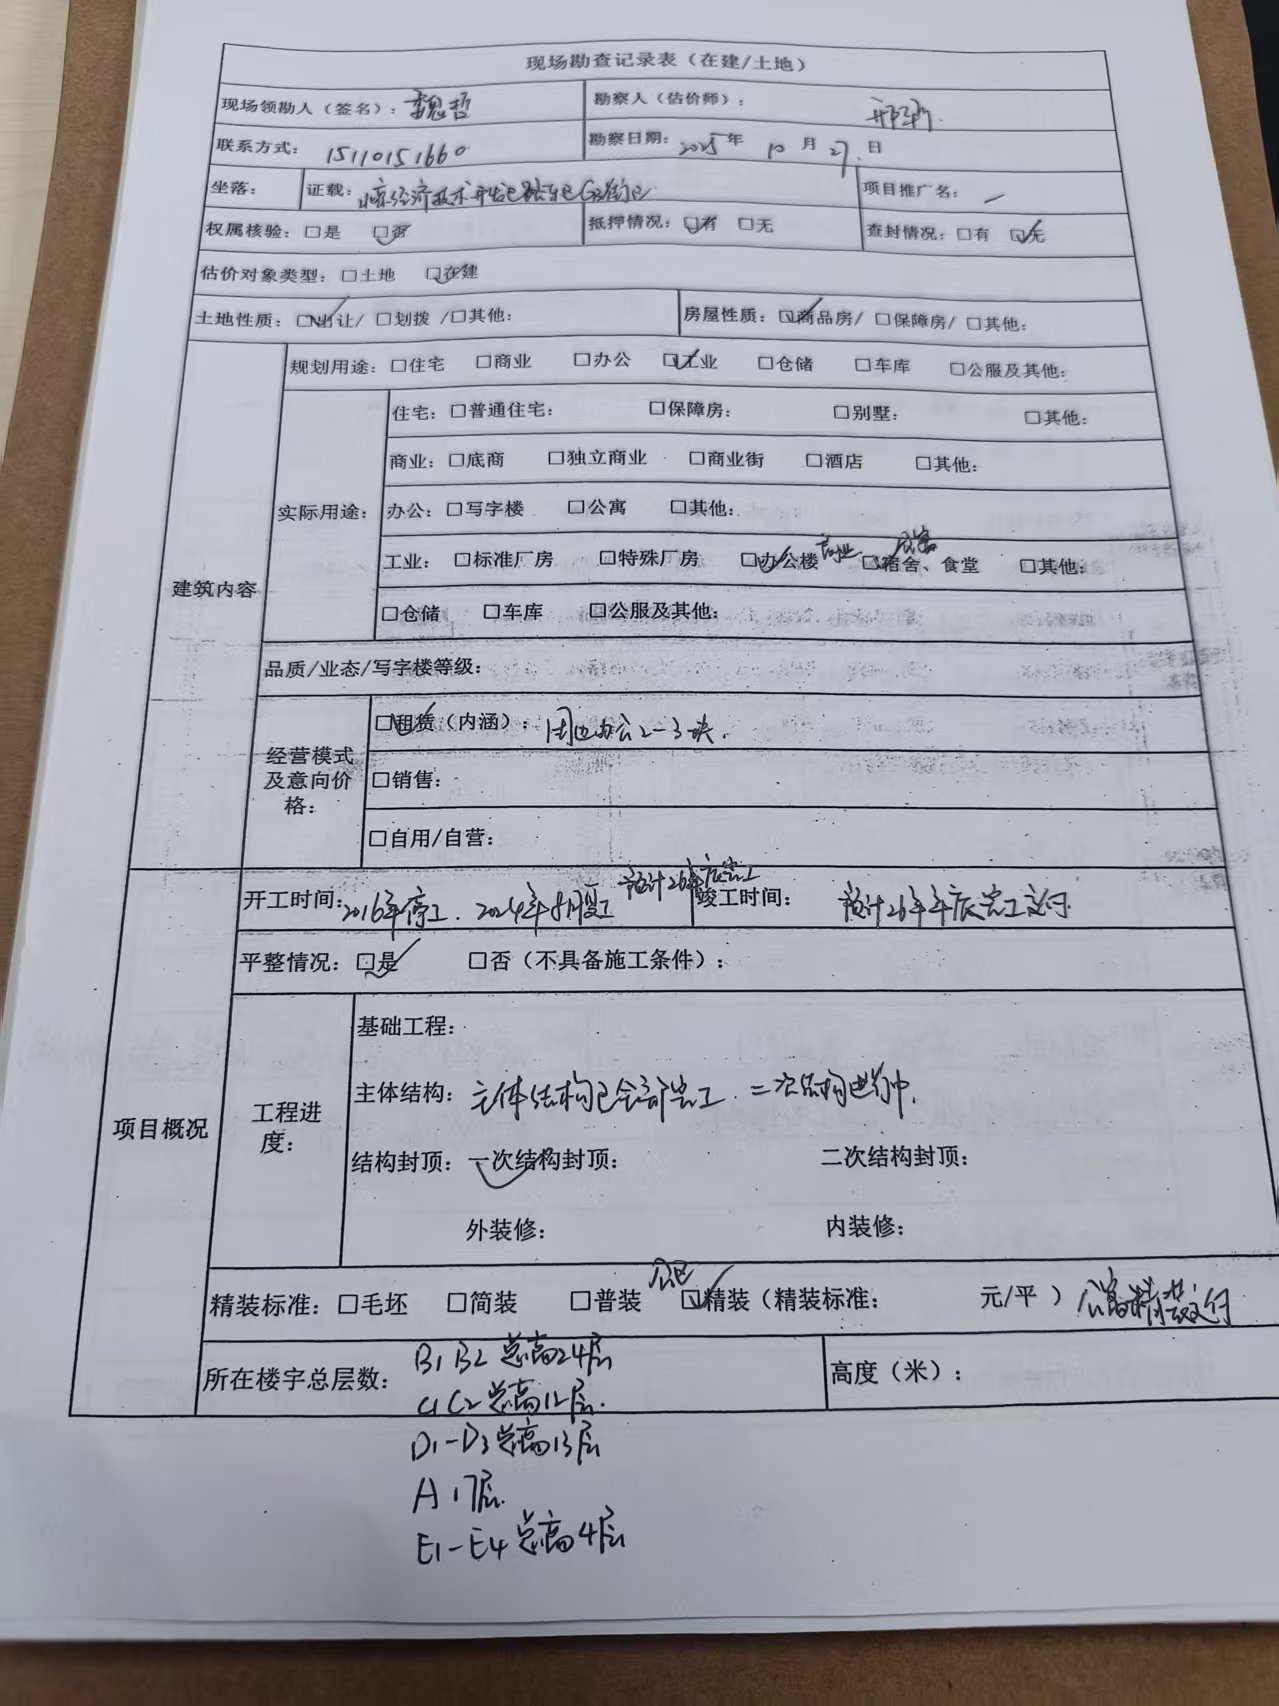 现场勘查记录表（在建/土地）
现场领勘人（签名）：魏哲 勘察人（估价师）：
联系方式：15110151660 勘察日期：2025年10月27日
坐落： 证载：北京经济技术开发区路东区G3街区 项目推广名：
权属核验：□是 ☑否 抵押情况：☑有 □无 查封情况：□有 ☑无
估价对象类型：□土地 ☑在建
土地性质：☑出让/ □划拨 /□其他： 房屋性质：☑商品房/ □保障房/ □其他：
建筑内容
规划用途：□住宅 □商业 □办公 ☑工业 □仓储 □车库 □公服及其他：
实际用途：
住宅：□普通住宅： □保障房： □别墅： □其他：
商业：□底商 □独立商业 □商业街 □酒店 □其他：
办公：□写字楼 □公寓 □其他：
商业 公寓
工业：□标准厂房 □特殊厂房 ☑办公楼 ☑宿舍、食堂 □其他：
□仓储 □车库 □公服及其他：
品质/业态/写字楼等级：
经营模式及意向价格：
☑租赁（内涵）：周边办公2-3块.
□销售：
□自用/自营：
项目概况
预计26年底完工
开工时间：2016年停工. 2024年8月复工 竣工时间：预计26年年底完工交付
平整情况：☑是 □否（不具备施工条件）：
工程进度：
基础工程：
主体结构：主体结构已全部完工. 二次结构进行中.
结构封顶：一次结构封顶：✓ 二次结构封顶：
外装修： 内装修：
公区
精装标准：□毛坯 □简装 □普装 ☑精装（精装标准： 元/平） 公寓精装交付
所在楼宇总层数：B1 B2 总高24层 高度（米）：
C1 C2 总高12层.
D1-D3 总高13层
A 17层.
E1-E4 总高4层